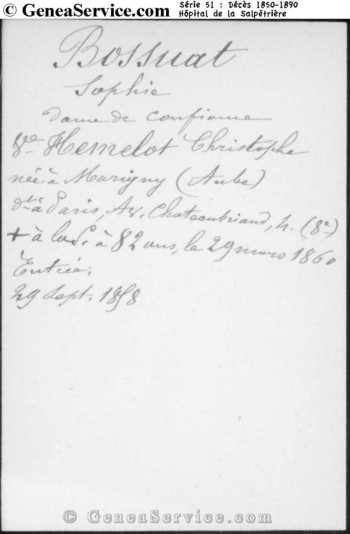 © GeneaService.com
Série 51 : Décès 1850-1890
Hôpital de la Salpêtrière
Bossuat
Sophie
Dame de confiance
Vve Hemelot Christophe
née à Marigny (Aube)
dte à Paris, Av. Chateaubriand, 4. (8e)
+ à la S. à 82 ans, le 29 mars 1860
Entrée:
29 sept. 1858
© GeneaService.com